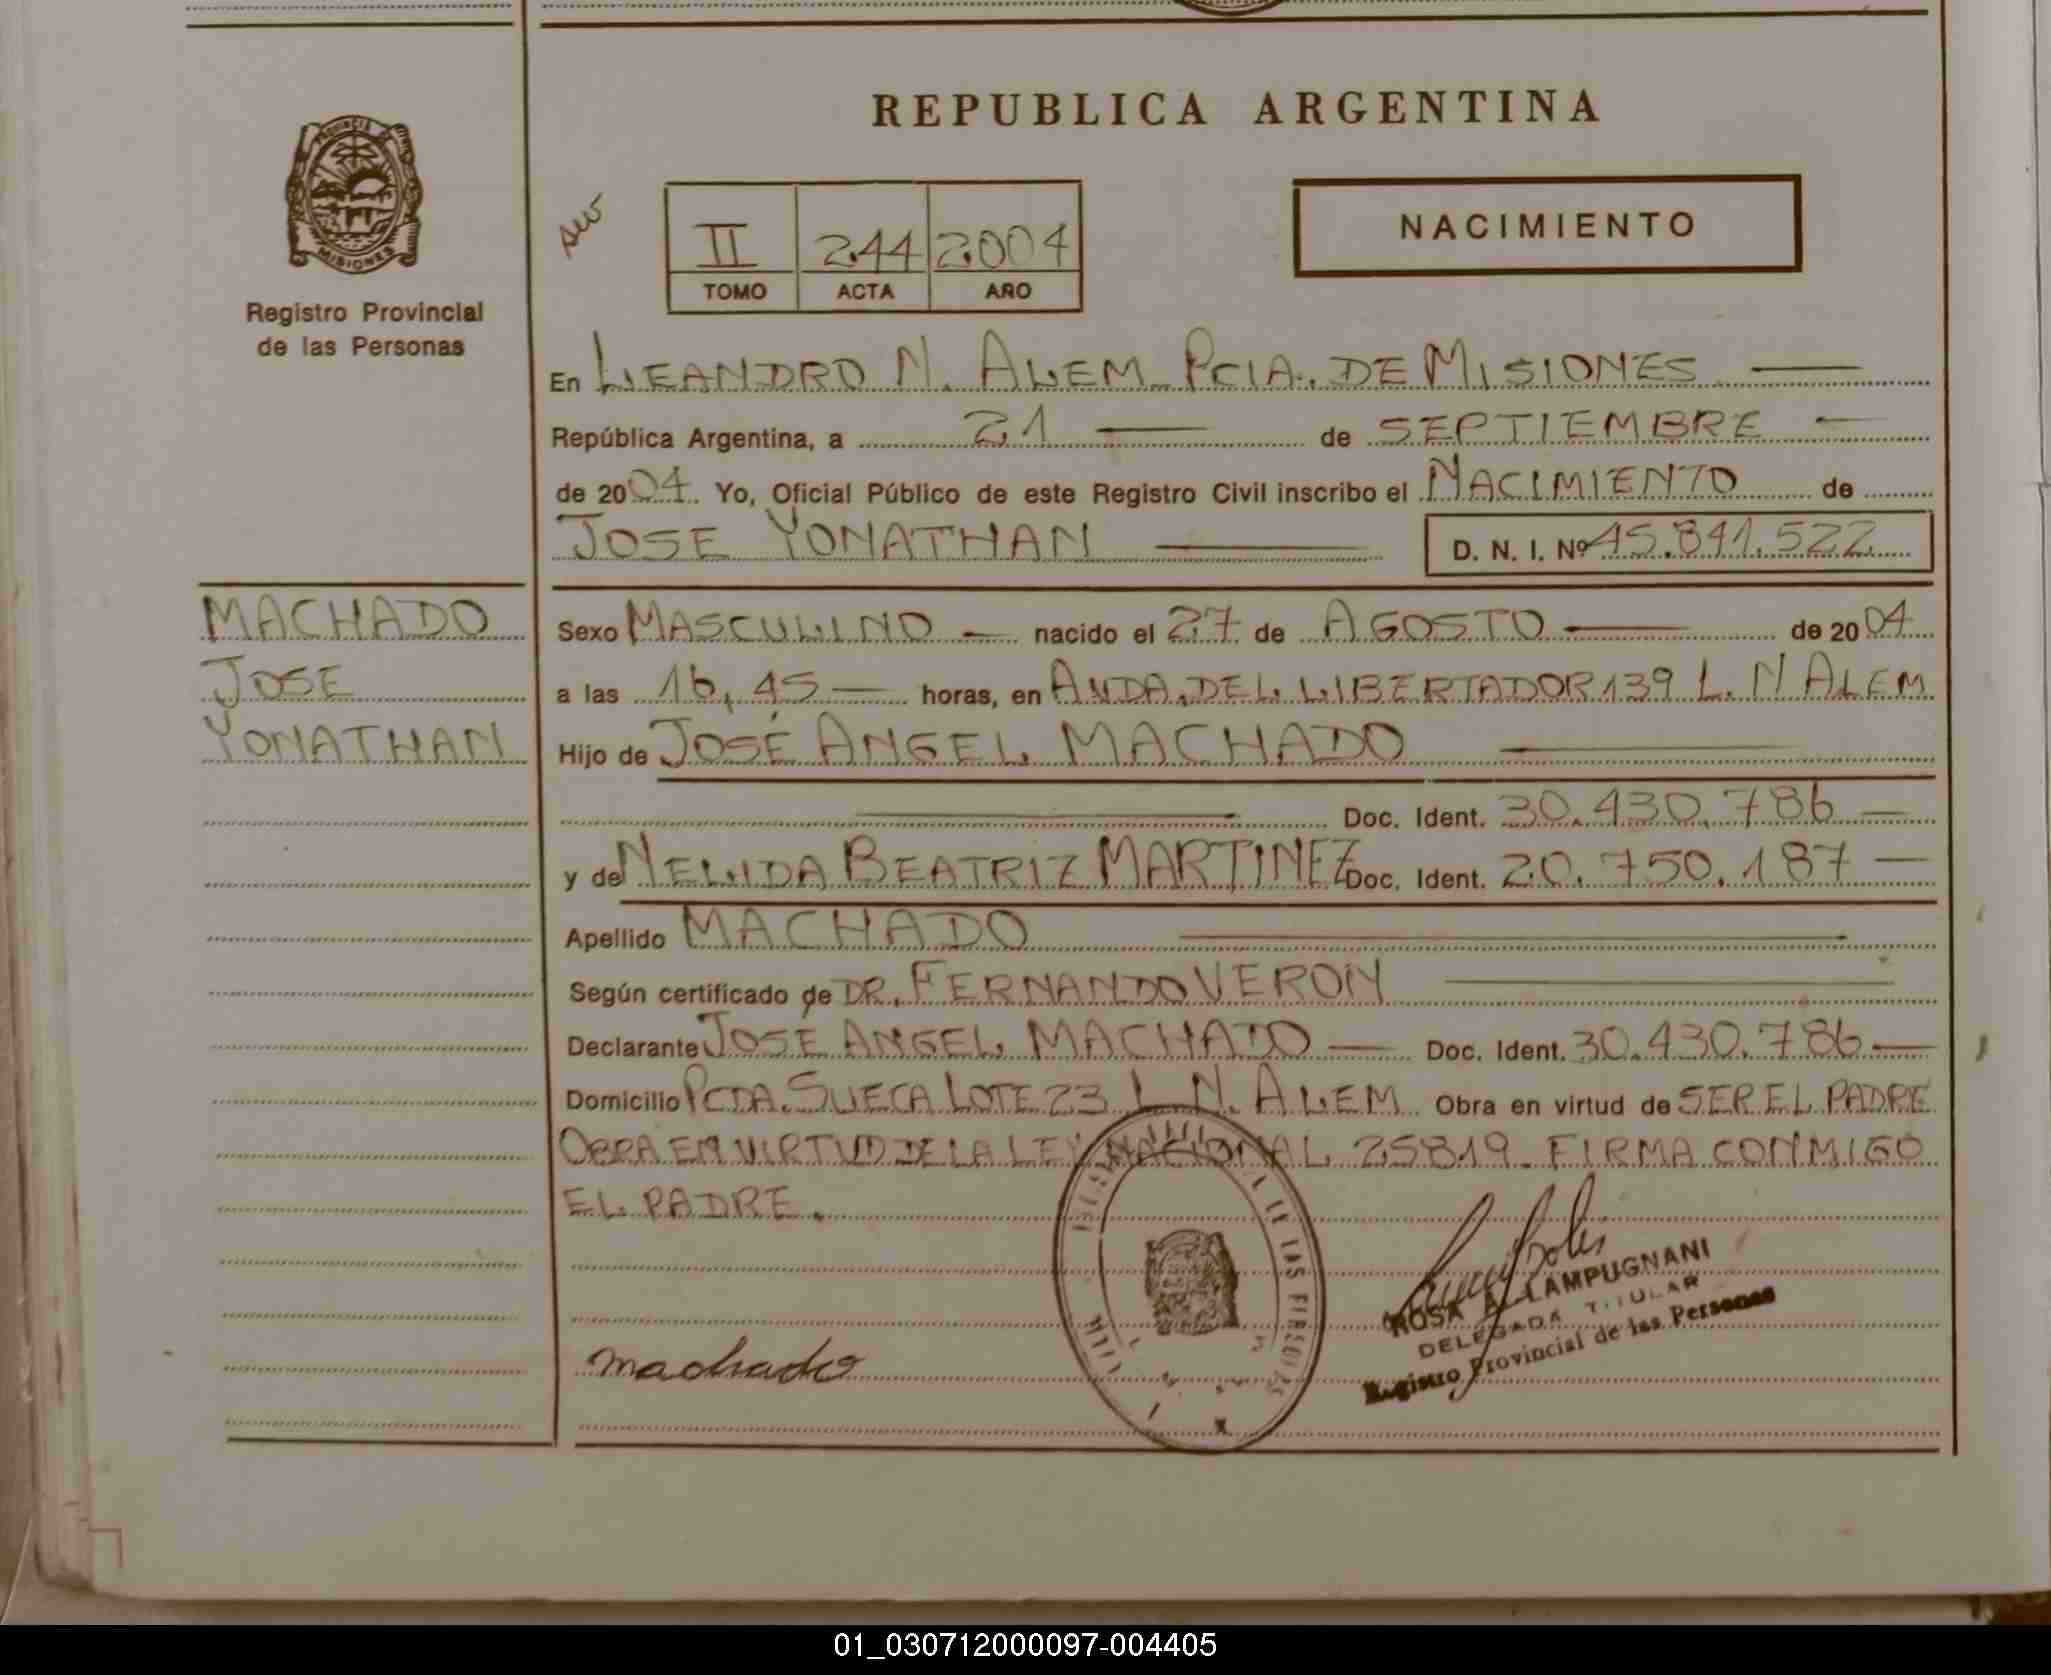 REPUBLICA ARGENTINA
PROVINCIA DE
MISIONES
Registro Provincial
de las Personas
II 244 2.004
TOMO ACTA AÑO
NACIMIENTO
En LEANDRO N. ALEM PCIA. DE MISIONES
República Argentina, a 21 de SEPTIEMBRE
de 2004. Yo, Oficial Público de este Registro Civil inscribo el NACIMIENTO de
JOSE YONATHAN D. N. I. Nº 45.841.522
MACHADO
JOSE
YONATHAN
Sexo MASCULINO nacido el 27 de AGOSTO de 2004
a las 16,45 horas, en AVDA. DEL LIBERTADOR 139 L. N ALEM
Hijo de JOSÉ ANGEL MACHADO
Doc. Ident. 30.430.786
y de NELIDA BEATRIZ MARTINEZ Doc. Ident. 20.750.187
Apellido MACHADO
Según certificado de DR. FERNANDO VERON
Declarante JOSE ANGEL MACHADO Doc. Ident. 30.430.786
Domicilio PCDA. SUECA LOTE 23 L. N. ALEM Obra en virtud de SER EL PADRE
OBRA EN VIRTUD DE LA LEY NACIONAL 25819. FIRMA CONMIGO
EL PADRE.
machado
ROSA A. LAMPUGNANI
DELEGADA TITULAR
Registro Provincial de las Personas
DE LAS PERSONAS
01_030712000097-004405